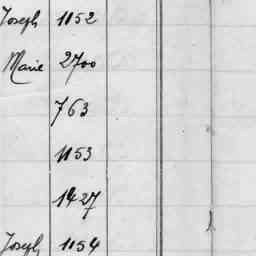 Joseph 1152
Marie 2700
763
1153
1427
Joseph 1154